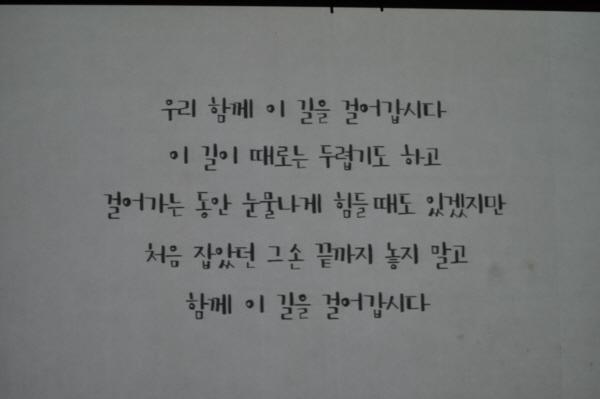 우리 함께 이 길을 걸어갑시다
이 길이 때로는 두렵기도 하고
걸어가는 동안 눈물나게 힘들 때도 있겠지만
처음 잡았던 그손 끝까지 놓지 말고
함께 이 길을 걸어갑시다